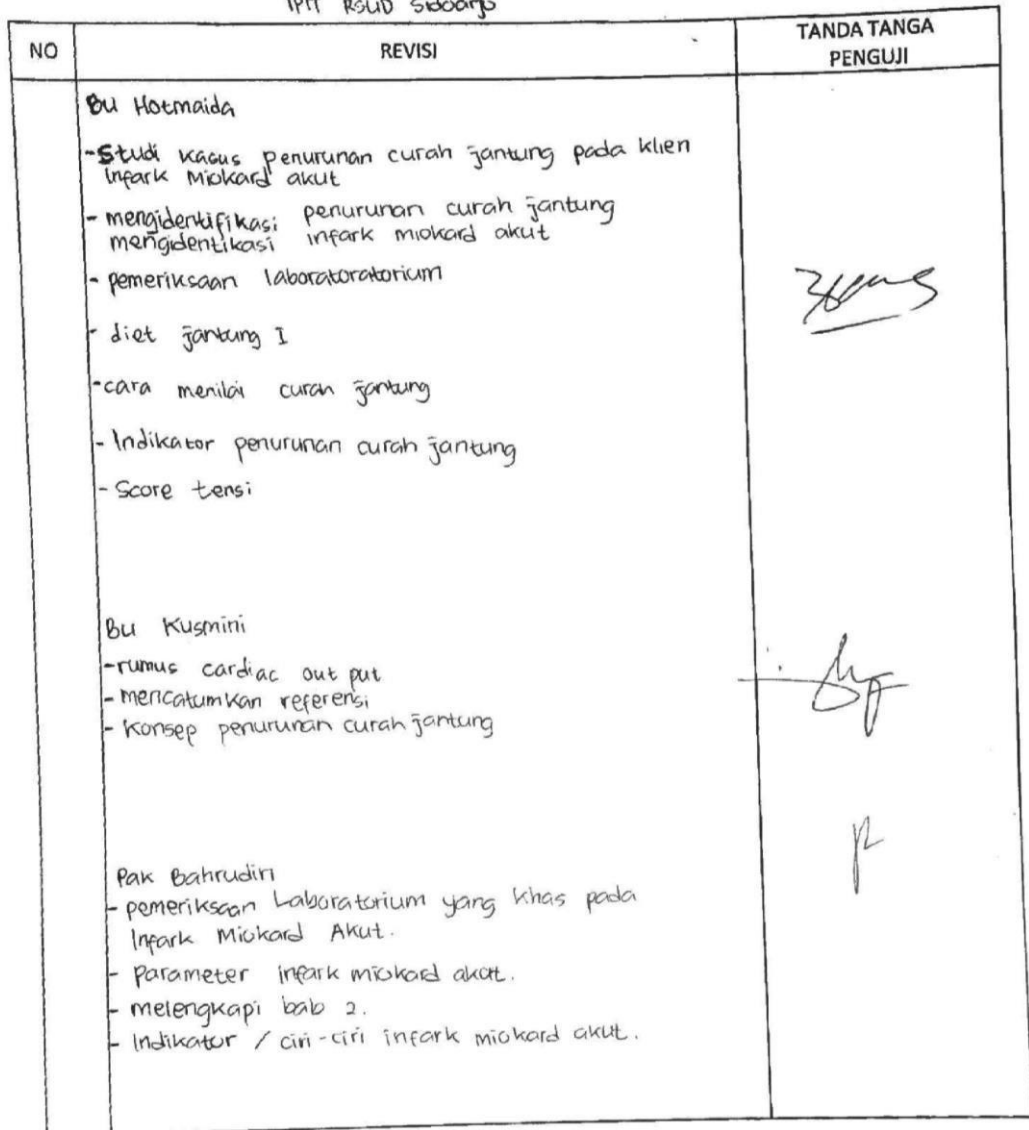 IPIT RSUD Sidoarjo
NO
REVISI
TANDA TANGA
PENGUJI
Bu Hotmaida
- Studi kasus penurunan curah jantung pada klien
Infark Miokard akut
- mengidentifikasi penurunan curah jantung
mengidentikasi infark miokard akut
- pemeriksaan laboratoratorium
- diet jantung I
- cara menilai curah jantung
- Indikator penurunan curah jantung
- Score tensi
Bu Kusmini
- rumus cardiac out put
- mencatumkan referensi
- Konsep penurunan curah jantung
Pak Bahrudin
- pemeriksaan Laboratorium yang khas pada
Infark Miokard Akut.
- Parameter infark miokard akut.
- melengkapi bab 2.
- Indikator / ciri-ciri infark miokard akut.